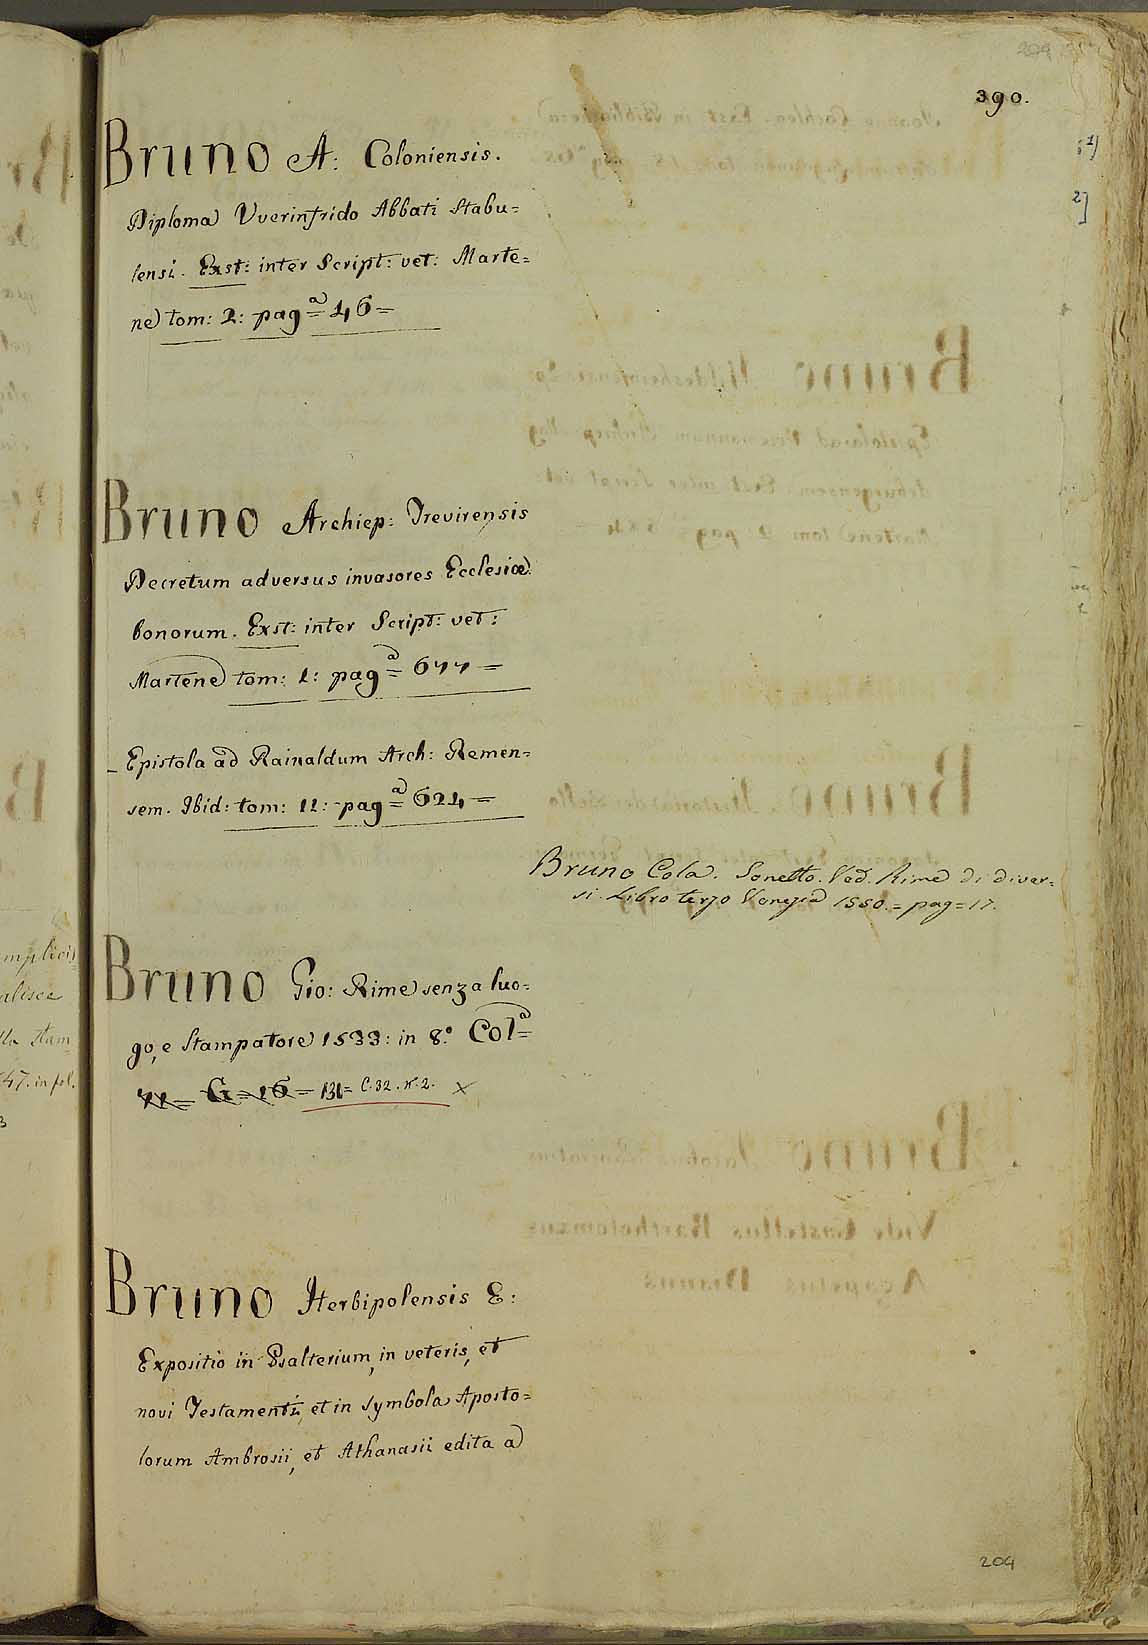 390.
Bruno A: Coloniensis.
Diploma Vverinfrido Abbati Stabu=
lensi. Exst: inter Script: vet: Marte=
ne tom: 2: pag.ª 46=
Bruno Archiep: Trevirensis
Decretum adversus invasores Ecclesiæ
bonorum. Exst: inter Script: vet:
Martene tom: 1: pag.ª 677=
_ Epistola ad Rainaldum Arch: Remen=
sem. Ibid: tom: 11: pag.ª 624=
Bruno Cola. Sonetto. Ved. Rime di diver=
si. Libro terzo Venezia 1550.= pag=17.
Bruno Gio: Rime senza luo=
go, e Stampatore 1533: in 8.º Colª=
71= G=16= 131= C.32. N.2. x
Bruno Herbipolensis E:
Expositio in Psalterium, in veteris, et
novi Testamenti, et in Symbola Aposto=
lorum Ambrosii, et Athanasii edita a
204